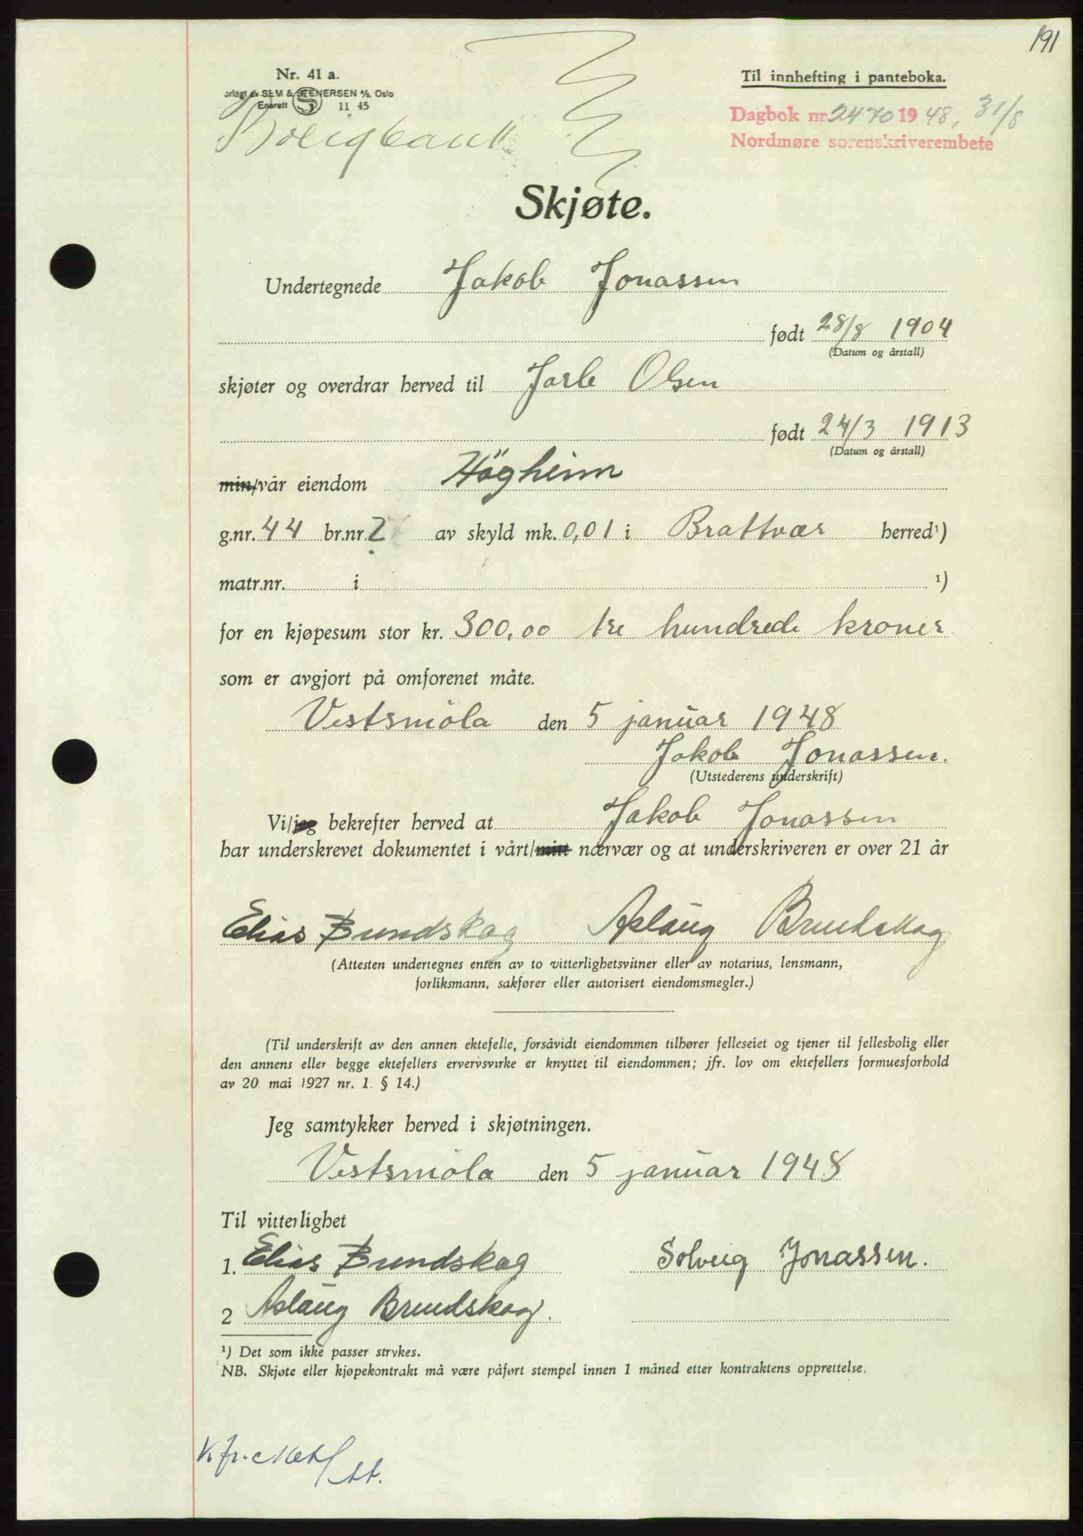 191
Nr. 41 a.
Til innhefting i panteboka.
SEM & STENERSEN A/S, Oslo
Enerett S 11 45
Dagbok nr. 2470 1948, 31/8
Nordmøre sorenskriverembete
Boligbank
Skjøte.
Undertegnede Jakob Jonassen
født 28/8 1904
(Datum og årstall)
skjøter og overdrar herved til Jarle Olsen
født 24/3 1913
(Datum og årstall)
min/vår eiendom Högheim
g.nr. 44 br.nr. 2 av skyld mk. 0,01 i Brattvær herred¹)
matr.nr. i ¹)
for en kjøpesum stor kr. 300,00 tre hundrede kroner
som er avgjort på omforenet måte.
Vestsmöla den 5 januar 1948
Jakob Jonassen.
(Utstederens underskrift)
Vi/jeg bekrefter herved at Jakob Jonassen
har underskrevet dokumentet i vårt/mitt nærvær og at underskriveren er over 21 år
Elias Brundskag Aslaug Brundskag
(Attesten undertegnes enten av to vitterlighetsvitner eller av notarius, lensmann,
forliksmann, sakfører eller autorisert eiendomsmegler.)
(Til underskrift av den annen ektefelle, forsåvidt eiendommen tilhører felleseiet og tjener til fellesbolig eller
den annens eller begge ektefellers ervervsvirke er knyttet til eiendommen; jfr. lov om ektefellers formuesforhold
av 20 mai 1927 nr. 1. § 14.)
Jeg samtykker herved i skjøtningen.
Vestsmöla den 5 januar 1948
Til vitterlighet
1. Elias Brundskag Solveig Jonassen.
2 Aslaug Brundskag.
¹) Det som ikke passer strykes.
NB. Skjøte eller kjøpekontrakt må være påført stempel innen 1 måned etter kontraktens opprettelse.